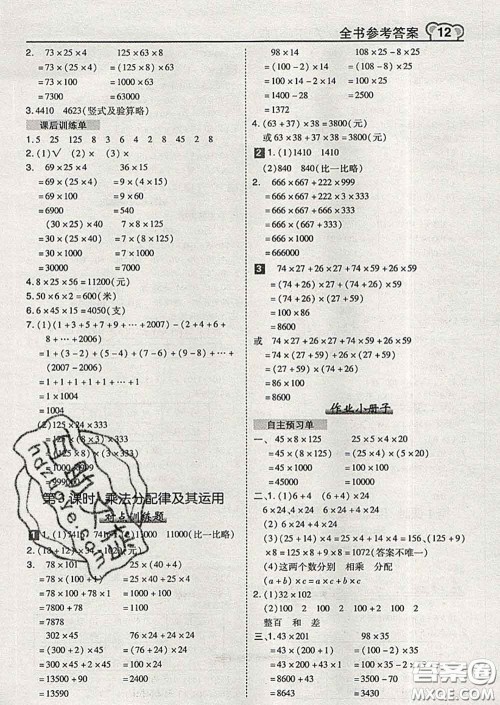 全书参考答案 12
2. 73×25×4 125×63×8
=73×(25×4) =125×8×63
=73×100 =1000×63
=7300 =63000
3. 4410 4623(竖式及验算略)
课后训练单
1. 5 25 8 125 63 2 4 8 2 45 8 2
2. (1)√ (2)× (3)×
3. 69×25×4 36×15
=69×(25×4) =9×(4×15)
=69×100 =9×60
=6900 =540
(30×25)×40 7×8×125
=30×(25×40) =7×(8×125)
=30×1000 =7×1000
=30000 =7000
4. 8×25×56=11200(元)
5. 50×6×2=600(米)
6. 15×6×45=4050(支)
7. (1)(1+3+5+7+9+…+2007)-(2+4+6+
8+…+2006)
=1+(3-2)+(5-4)+(7-6)+(9-8)+…+
(2007-2006)
=1+1+1+1+1+…+1
=1×1004
=1004
(2)125×24×333
=125×(8×3)×333
=(125×8)×(3×333)
=1000×999
=999000
课时 乘法分配律及其运用
对点训练题
11000(比一比略)
3. 78×101 25×(40+4)
=78×(100+1) =25×40+25×4
=78×100+78×1 =1000+100
=7800+78 =1100
=7878
302×45 76×24+24×24
=(300+2)×45 =(76+24)×24
=300×45+2×45 =100×24
=13500+90 =2400
=13590
98×14 108×25-8×25
=(100-2)×14 =(108-8)×25
=100×14-2×14 =100×25
=1400-28 =2500
=1372
4. (63+37)×38=3800(元)
或 63×38+37×38=3800(元)
2 1. (1)1410 1410
(2)840 840(比一比略)
2. 666×667+222×999
=666×667+222×3×333
=666×667+666×333
=666×(667+333)
=666×1000
=666000
3 74×27+26×27+74×59+26×59
=(74+26)×27+(74+26)×59
=100×27+100×59
=100×(27+59)
=100×86
=8600
或 74×27+26×27+74×59+26×59
=74×(27+59)+26×(27+59)
=74×86+26×86
=(74+26)×86
=100×86
=8600
作业小册子
自主预习单
一、45×8×125 25×15×4
=45×(8×125) =25×4×15
=45×1000 =100×15
=45000 =1500
二、1. (1)(6+4)×24 6×24+4×24
(2)(6+4)×24 6×24+4×24 (6+4)×24
6×24,4×24 (6+4)×24 6×24+4×24
(3)(12+8)×5=12×5+8×5 (125+9)
×8=125×8+9×8=1072(答案不唯一)
(4)这两个数分别 相乘 分配
(a+b)×c=a×c+b×c
2. (1)32×102
=32×(100+2)
=32×100+32×2
整百 和 差
三、1. 43×201 98×35
=43×(200+1) =(100-2)×35
=43×200+43×1 =100×35-2×35
=8600+43 =3500-70
=8643 =3430
答案圈
MXQE.COM